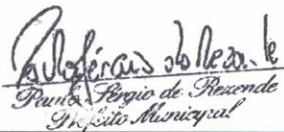 Paulo Sérgio de Rezende
Paulo Sérgio de Rezende
Prefeito Municipal